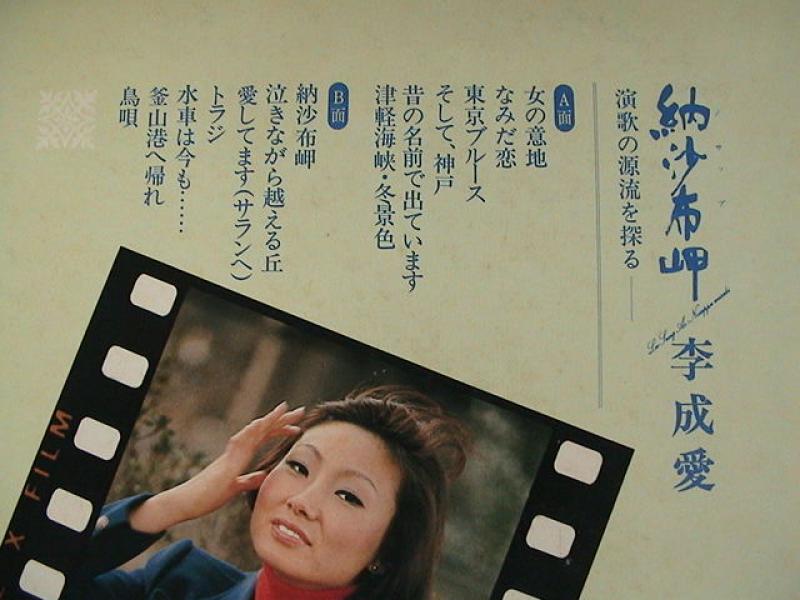 納沙布岬
ノサップ
李成愛
演歌の源流を探る——
A面
女の意地
なみだ恋
東京ブルース
そして、神戸
昔の名前で出ています
津軽海峡・冬景色
B面
納沙布岬
泣きながら越える丘
愛してます(サランヘ)
トラジ
水車は今も……
釜山港へ帰れ
鳥唄
X FILM